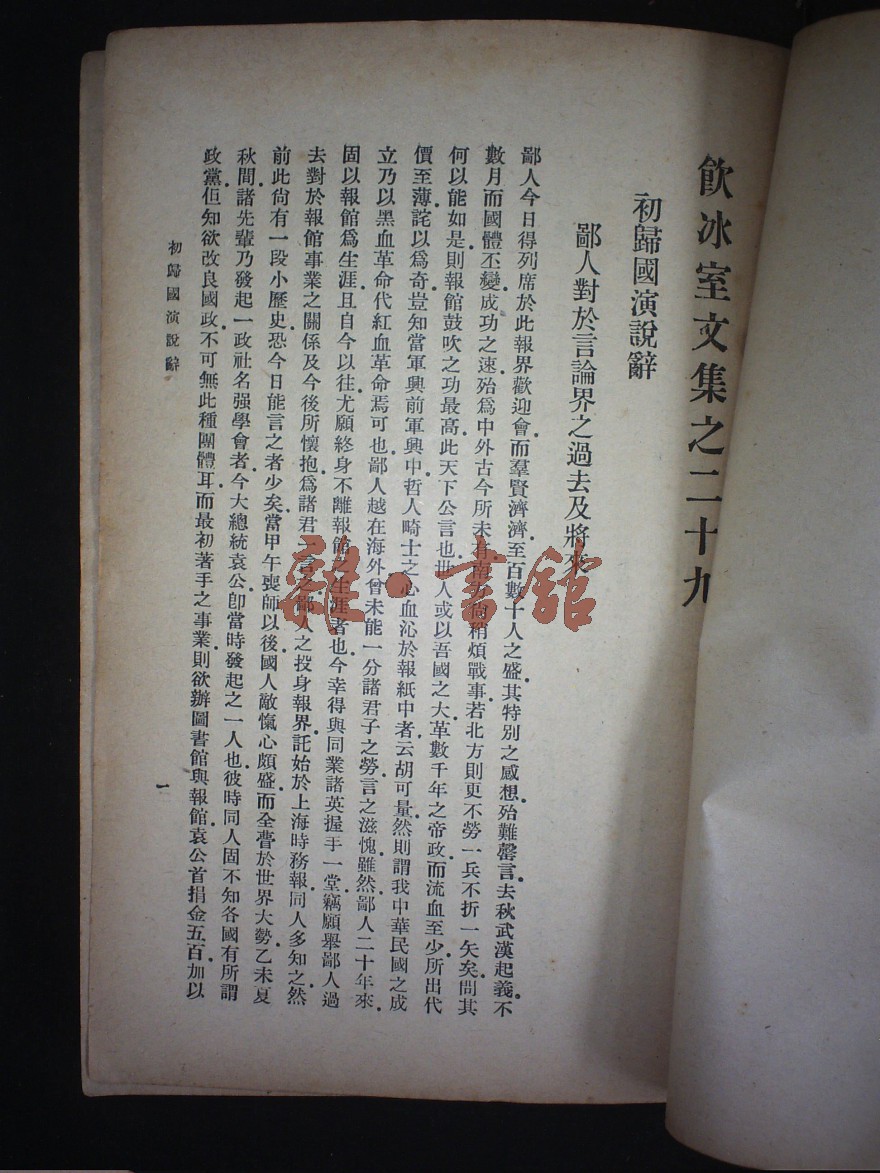 飲冰室文集之二十九
初歸國演說辭
鄙人對於言論界之過去及將來
鄙人今日得列席於此報界歡迎會而羣賢濟濟至百數十人之盛其特別之感想殆難罄言去秋武漢起義不
數月而國體丕變成功之速殆爲中外古今所未有南方尙稍煩戰事若北方則更不勞一兵不折一矢矣問其
何以能如是則報館鼓吹之功最高此天下公言也世人或以吾國之大革數千年之帝政而流血至少所出代
價至薄詫以爲奇豈知當軍興前軍興中哲人畸士之心血沁於報紙中者云胡可量然則謂我中華民國之成
立乃以黑血革命代紅血革命焉可也鄙人越在海外曾未能一分諸君子之勞言之滋愧雖然鄙人二十年來
固以報館爲生涯且自今以往尤願終身不離報館之生涯者也今幸得與同業諸英握手一堂竊願舉鄙人過
去對於報館事業之關係及今後所懷抱爲諸君一言之鄙人之投身報界託始於上海時務報同人多知之然
前此尙有一段小歷史恐今日能言之者少矣當甲午喪師以後國人敵愾心頗盛而全瞢於世界大勢乙未夏
秋間諸先輩乃發起一政社名强學會者今大總統袁公卽當時發起之一人也彼時同人固不知各國有所謂
政黨但知欲改良國政不可無此種團體耳而最初著手之事業則欲辦圖書館與報館袁公首捐金五百加以
初歸國演說辭
一
雜·書館